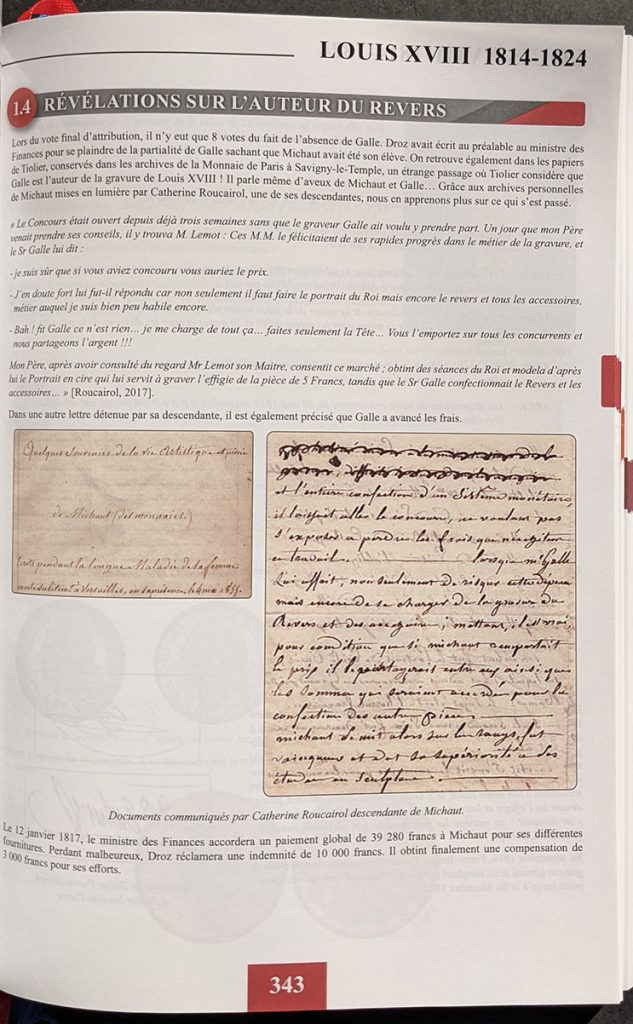 LOUIS XVIII 1814-1824
1.4 RÉVÉLATIONS SUR L'AUTEUR DU REVERS
Lors du vote final d'attribution, il n'y eut que 8 votes du fait de l'absence de Galle. Droz avait écrit au préalable au ministre des
Finances pour se plaindre de la partialité de Galle sachant que Michaut avait été son élève. On retrouve également dans les papiers
de Tiolier, conservés dans les archives de la Monnaie de Paris à Savigny-le-Temple, un étrange passage où Tiolier considère que
Galle est l'auteur de la gravure de Louis XVIII ! Il parle même d'aveux de Michaut et Galle… Grâce aux archives personnelles
de Michaut mises en lumière par Catherine Roucairol, une de ses descendantes, nous en apprenons plus sur ce qui s'est passé.
« Le Concours était ouvert depuis déjà trois semaines sans que le graveur Galle ait voulu y prendre part. Un jour que mon Père
venait prendre ses conseils, il y trouva M. Lemot : Ces M.M. le félicitaient de ses rapides progrès dans le métier de la gravure, et
le Sr Galle lui dit :
- je suis sûr que si vous aviez concouru vous auriez le prix.
- J'en doute fort lui fut-il répondu car non seulement il faut faire le portrait du Roi mais encore le revers et tous les accessoires,
métier auquel je suis bien peu habile encore.
- Bah ! fit Galle ce n'est rien… je me charge de tout ça… faites seulement la Tête… Vous l'emportez sur tous les concurrents et
nous partageons l'argent !!!
Mon Père, après avoir consulté du regard Mr Lemot son Maitre, consentit ce marché ; obtint des séances du Roi et modela d'après
lui le Portrait en cire qui lui servit à graver l'effigie de la pièce de 5 Francs, tandis que le Sr Galle confectionnait le Revers et les
accessoires… » [Roucairol, 2017].
Dans une autre lettre détenue par sa descendante, il est également précisé que Galle a avancé les frais.
Quelques Souvenirs de la vie Artistique et privée
de Michaut (des monnaies.)
Ecrits pendant la longue Maladie de sa femme
à Versailles, en sa présence, le 4 mai 1855.
et l'entière confection d'un Sistème monétaire,
il laissait aller le concours, ne voulant pas
s'exposer à perdre les frais que nécessitait
ce travail. lorsque Mr Galle
lui offrit, non seulement de risquer cette dépense
mais encore de se charger de la gravure du
Revers et des accessoires ; mettant,
pour condition que si michaut remportait
le prix il le partagerait entre eux ainsi que
les sommes qui seraient accordées pour la
confection des autres pièces.
michaut se mit alors sur les rangs, fut
vainqueur et dut sa supériorité à ses
études en sculpture.
Documents communiqués par Catherine Roucairol descendante de Michaut.
Le 12 janvier 1817, le ministre des Finances accordera un paiement global de 39 280 francs à Michaut pour ses différentes
fournitures. Perdant malheureux, Droz réclamera une indemnité de 10 000 francs. Il obtint finalement une compensation de
3 000 francs pour ses efforts.
343